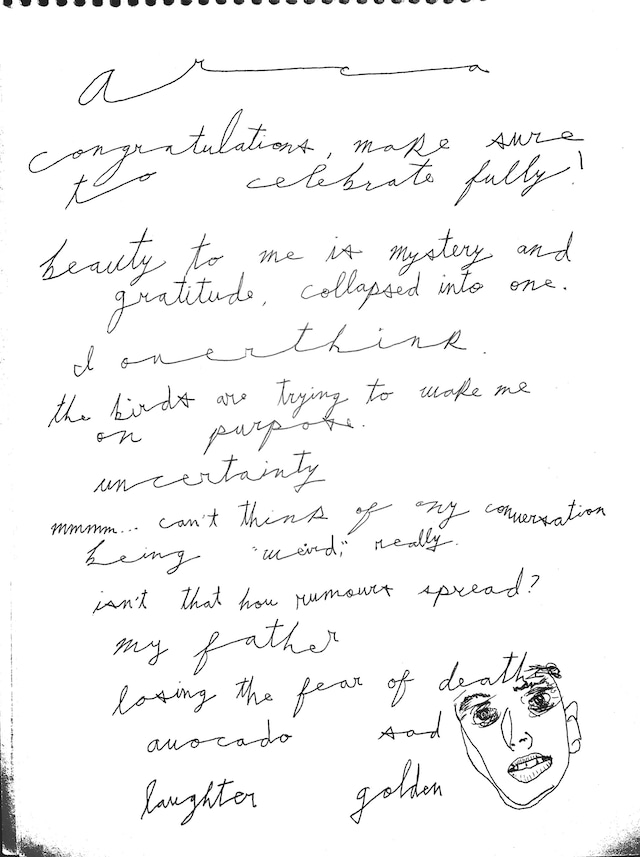 arca
congratulations, make sure
to celebrate fully!
beauty to me is mystery and
gratitude, collapsed into one.
I overthink.
the birds are trying to wake me
on purpose.
uncertainty
mmmm... can't think of any conversation
being "weird," really.
isn't that how rumours spread?
my father
losing the fear of death
avocado sad
laughter golden